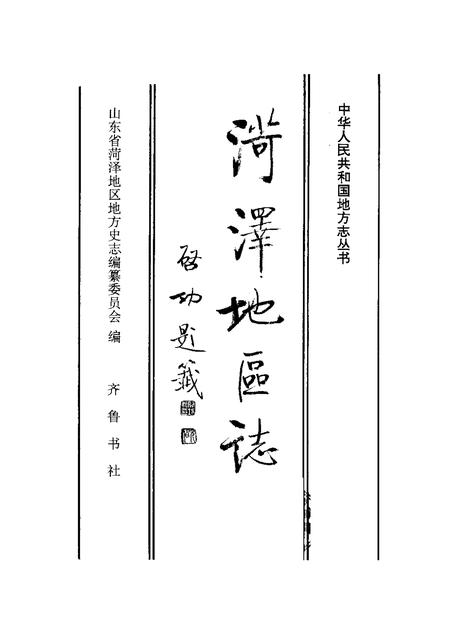 中华人民共和国地方志丛书
菏澤地區誌
啓功题籤
山东省菏泽地区地方史志编纂委员会 编
齐鲁书社